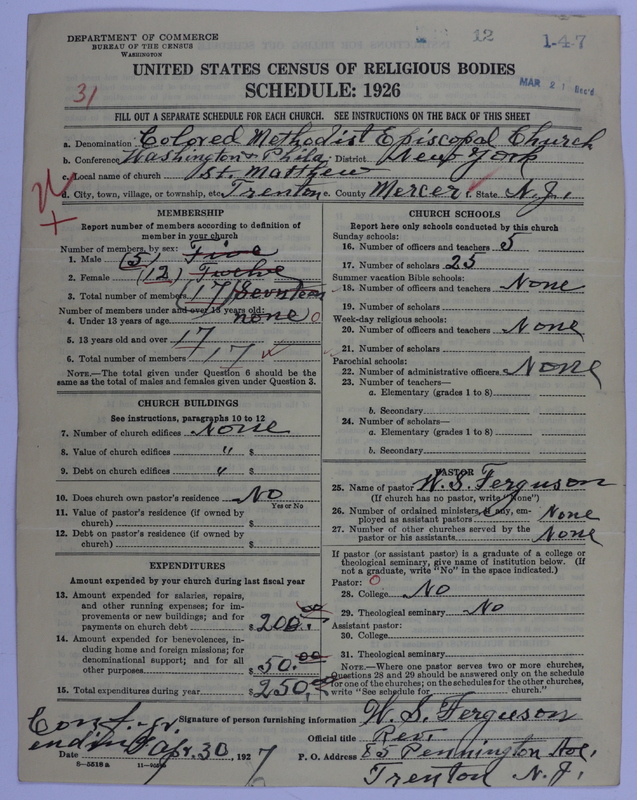 DEPARTMENT OF COMMERCE
BUREAU OF THE CENSUS
WASHINGTON
12
1-4-7
MAR 21 Rec'd
31
UNITED STATES CENSUS OF RELIGIOUS BODIES
SCHEDULE: 1926
FILL OUT A SEPARATE SCHEDULE FOR EACH CHURCH. SEE INSTRUCTIONS ON THE BACK OF THIS SHEET
a. Denomination Colored Methodist Episcopal Church
b. Conference Washington & Phila. District New York
c. Local name of church St. Matthew
d. City, town, village, or township, etc. Trenton e. County Mercer f. State N.J.
MEMBERSHIP
Report number of members according to definition of
member in your church
Number of members, by sex:
1. Male (5) Five
2. Female (12) Twelve
3. Total number of members 17 Seventeen
Number of members under and over 13 years old:
4. Under 13 years of age none 0
5. 13 years old and over 17
6. Total number of members 17
NOTE.—The total given under Question 6 should be the
same as the total of males and females given under Question 3.
CHURCH BUILDINGS
See instructions, paragraphs 10 to 12
7. Number of church edifices None
8. Value of church edifices " $
9. Debt on church edifices " $
10. Does church own pastor's residence No
Yes or No
11. Value of pastor's residence (if owned by
church) $
12. Debt on pastor's residence (if owned by
church) $
EXPENDITURES
Amount expended by your church during last fiscal year
13. Amount expended for salaries, repairs,
and other running expenses; for im-
provements or new buildings; and for
payments on church debt $ 200.00
14. Amount expended for benevolences, in-
cluding home and foreign missions; for
denominational support; and for all
other purposes $ 50.00
15. Total expenditures during year $ 250.00
CHURCH SCHOOLS
Report here only schools conducted by this church
Sunday schools:
16. Number of officers and teachers 5
17. Number of scholars 25
Summer vacation Bible schools:
18. Number of officers and teachers None
19. Number of scholars
Week-day religious schools:
20. Number of officers and teachers None
21. Number of scholars
Parochial schools:
22. Number of administrative officers None
23. Number of teachers—
a. Elementary (grades 1 to 8)
b. Secondary
24. Number of scholars—
a. Elementary (grades 1 to 8)
b. Secondary
PASTOR
25. Name of pastor W. S. Ferguson
(If church has no pastor, write "None")
26. Number of ordained ministers, if any, em-
ployed as assistant pastors None
27. Number of other churches served by the
pastor or his assistants None
If pastor (or assistant pastor) is a graduate of a college or
theological seminary, give name of institution below. (If
not a graduate, write "No" in the space indicated.)
Pastor: 0
28. College No
29. Theological seminary No
Assistant pastor:
30. College
31. Theological seminary
NOTE.—Where one pastor serves two or more churches,
Questions 28 and 29 should be answered only on the schedule
for one of the churches; on the schedules for the other churches,
write "See schedule for church."
Signature of person furnishing information W. S. Ferguson
Official title Rev.
Conf. yr.
ending
Date Apr. 30, 1927 P. O. Address 85 Pennington Ave.
Trenton N. J.
8—5518a